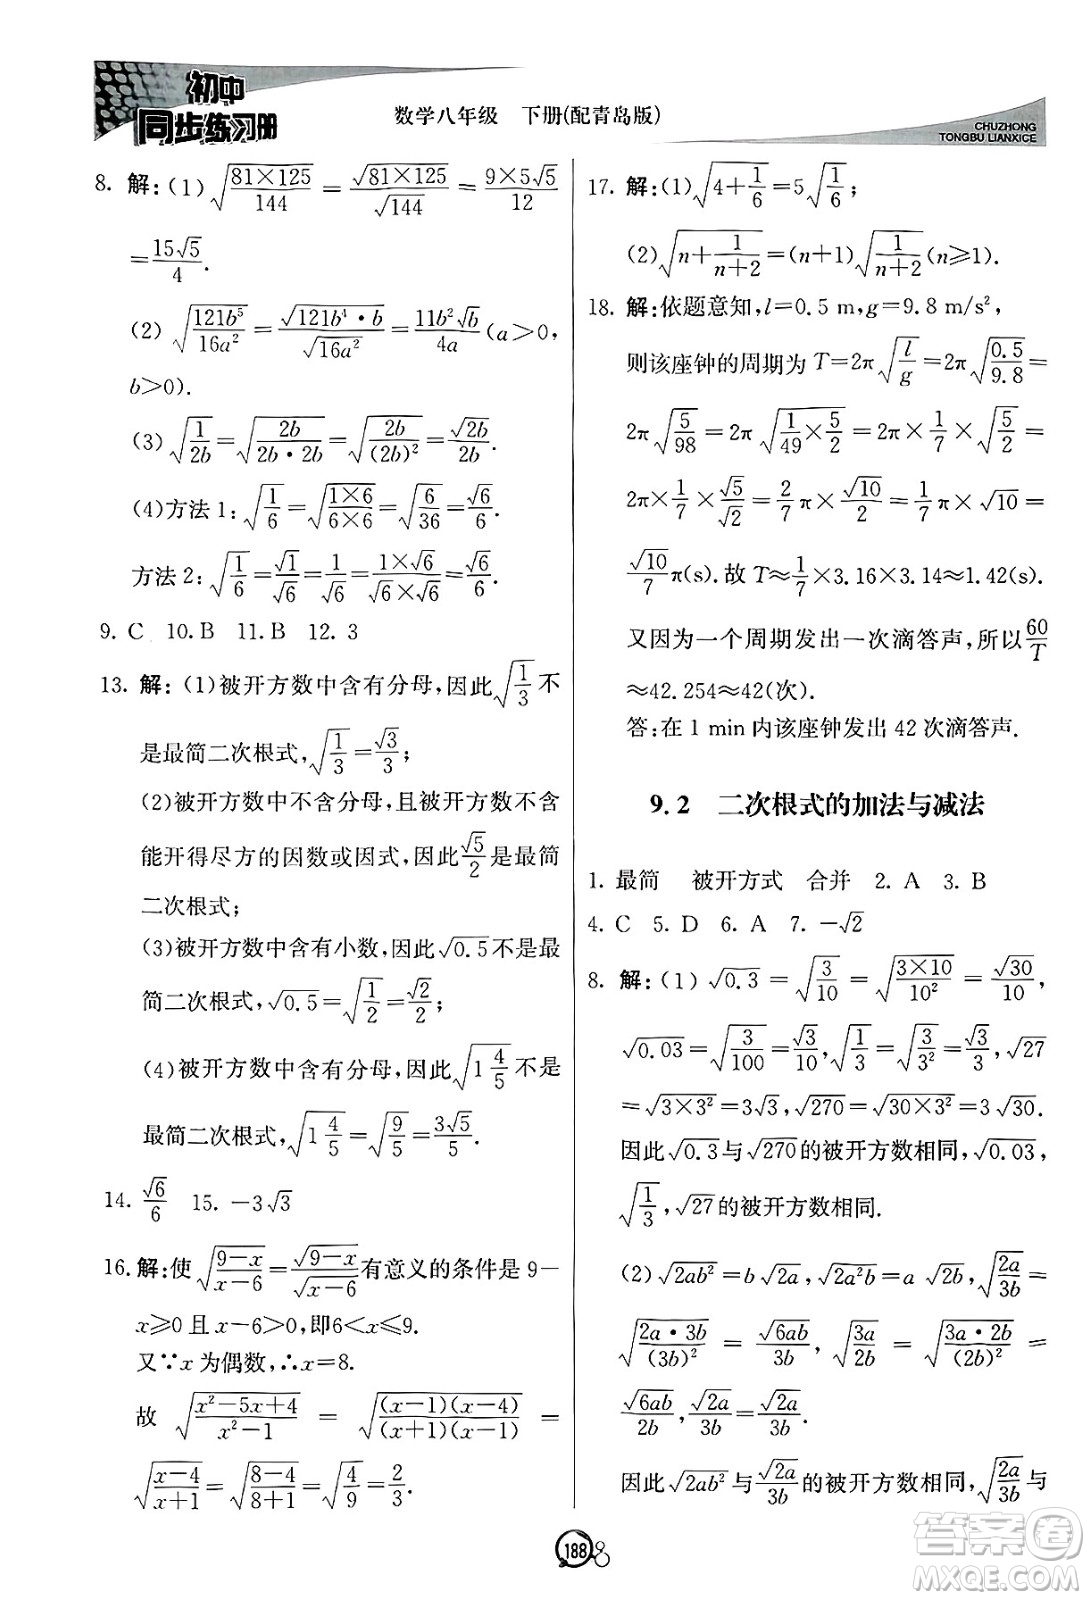 初中
同步练习册
数学八年级 下册(配青岛版)
CHUZHONG
TONGBU LIANXICE
8. 解:(1)√(81×125/144)=√(81×125)/√144=9×5√5/12
=15√5/4.
(2)√(121b⁵/16a²)=√(121b⁴·b)/√(16a²)=11b²√b/4a(a>0,
b>0).
(3)√(1/2b)=√(2b/(2b·2b))=√(2b/(2b)²)=√2b/2b.
(4)方法1:√(1/6)=√(1×6/6×6)=√(6/36)=√6/6.
方法2:√(1/6)=√1/√6=1/√6=1×√6/(√6×√6)=√6/6.
9. C 10. B 11. B 12. 3
13. 解:(1)被开方数中含有分母,因此√(1/3)不
是最简二次根式,√(1/3)=√3/3;
(2)被开方数中不含分母,且被开方数不含
能开得尽方的因数或因式,因此√5/2是最简
二次根式;
(3)被开方数中含有小数,因此√0.5不是最
简二次根式,√0.5=√(1/2)=√2/2;
(4)被开方数中含有分母,因此√(1 4/5)不是
最简二次根式,√(1 4/5)=√(9/5)=3√5/5.
14. √6/6 15. -3√3
16. 解:使√((9-x)/(x-6))=√(9-x)/√(x-6)有意义的条件是 9-
x≥0 且 x-6>0,即6<x≤9.
又∵x 为偶数,∴x=8.
故 √((x²-5x+4)/(x²-1)) = √((x-1)(x-4)/((x+1)(x-1))) =
√((x-4)/(x+1))=√((8-4)/(8+1))=√(4/9)=2/3.
17. 解:(1)√(4+1/6)=5√(1/6);
(2)√(n+1/(n+2))=(n+1)√(1/(n+2))(n≥1).
18. 解:依题意知,l=0.5 m,g=9.8 m/s²,
则该座钟的周期为 T=2π√(l/g)=2π√(0.5/9.8)=
2π√(5/98)=2π√(1/49×5/2)=2π×1/7×√(5/2)=
2π×1/7×√5/√2=2/7π×√10/2=1/7π×√10=
√10/7π(s).故 T≈1/7×3.16×3.14≈1.42(s).
又因为一个周期发出一次滴答声,所以60/T
≈42.254≈42(次).
答:在 1 min 内该座钟发出 42 次滴答声.
9.2 二次根式的加法与减法
1. 最简 被开方式 合并 2. A 3. B
4. C 5. D 6. A 7. -√2
8. 解:(1)√0.3=√(3/10)=√(3×10/10²)=√30/10,
√0.03=√(3/100)=√3/10,√(1/3)=√(3/3²)=√3/3,√27
=√(3×3²)=3√3,√270=√(30×3²)=3√30.
因此√0.3与√270的被开方数相同,√0.03,
√(1/3),√27的被开方数相同.
(2)√(2ab²)=b√2a,√(2a²b)=a√2b,√(2a/3b)=
√(2a·3b/(3b)²) = √6ab/3b,√(3a/2b) = √(3a·2b/(2b)²) =
√6ab/2b,√2a/3b=√2a/3b.
因此√(2ab²)与√2a/3b的被开方数相同,√(2a/3b)与
188
答案卷
MXQE.COM